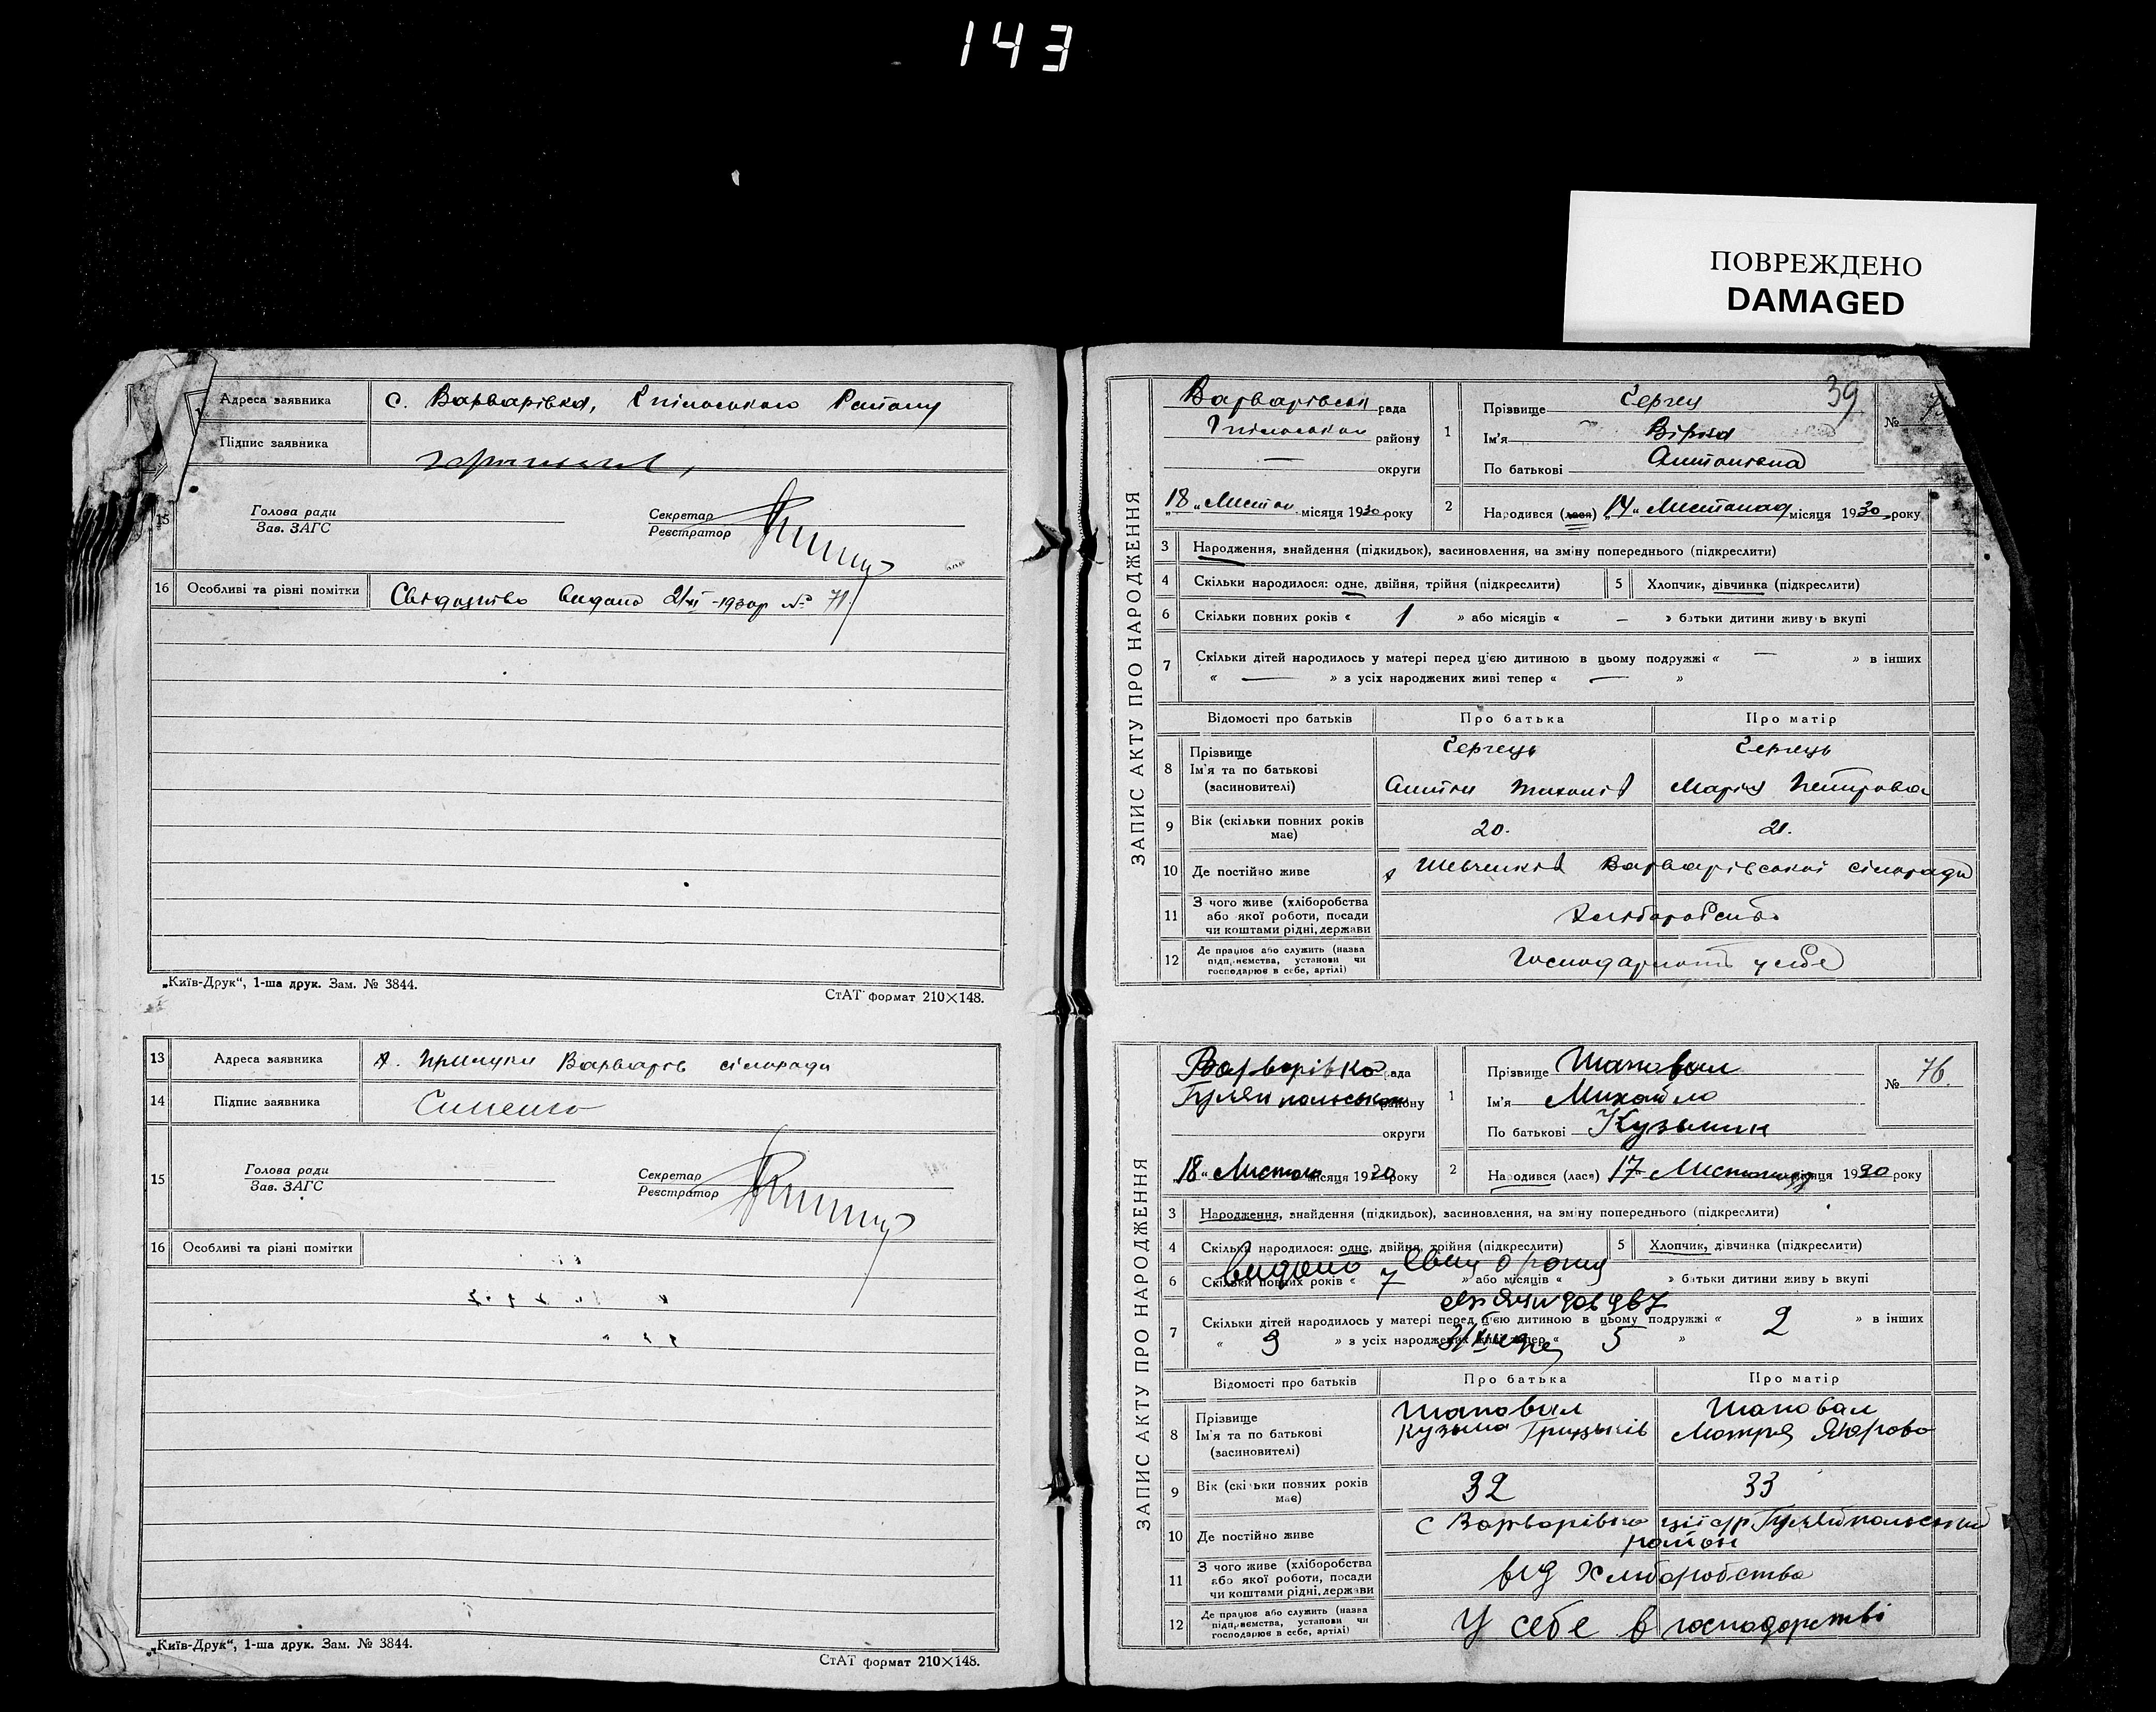 143
ПОВРЕЖДЕНО
DAMAGED
Адреса заявника с. Варварівка,
Підпис заявника
15 Голова ради Секретар
Зав. ЗАГС Реєстратор
16 Особливі та різні помітки Свідоцтво видано 21/XI-1930р №
„Київ-Друк“, 1-ша друк. Зам. № 3844.
СтАТ формат 210×148.
13 Адреса заявника х. Прилуки Варварів сільради
14 Підпис заявника
15 Голова ради Секретар
Зав. ЗАГС Реєстратор
16 Особливі та різні помітки
„Київ-Друк“, 1-ша друк. Зам. № 3844.
СтАТ формат 210×148.
39
ЗАПИС АКТУ ПРО НАРОДЖЕННЯ
Варварівська рада
району
— округи
„18“ Листоп. місяця 1930 року
1 Прізвище
Ім'я Віра
По батькові Антонівна
№
2 Народився (лася) „14“ Листопад місяця 1930 року
3 Народження, знайдення (підкидьок), засиновлення, на зміну попереднього (підкреслити)
4 Скільки народилося: одне, двійня, трійня (підкреслити) 5 Хлопчик, дівчинка (підкреслити)
6 Скільки повних років « 1 » або місяців « — » батьки дитини живуть вкупі
7 Скільки дітей народилось у матері перед ц'єю дитиною в цьому подружжі « — » в інших
« — » з усіх народжених живі тепер « — »
Відомості про батьків Про батька Про матір
8 Прізвище
Ім'я та по батькові
(засиновителі) Антон Марія Петрова
9 Вік (скільки повних років має) 20. 21.
10 Де постійно живе х Шевченків Варварівської сільради
11 З чого живе (хліборобства або якої роботи, посади чи коштами рідні, держави Хліборобство
12 Де працює або служить (назва підприємства, установи чи господарює в себе, артілі) Господарюють у себе
ЗАПИС АКТУ ПРО НАРОДЖЕННЯ
Варварівка рада
району
округи
„18“ Листопа місяця 1930 року
1 Прізвище Шаповал
Ім'я Михайло
По батькові Кузьмик
№ 76.
2 Народився (лася) 17 Листопада місяця 1930 року
3 Народження, знайдення (підкидьок), засиновлення, на зміну попереднього (підкреслити)
4 Скільки народилося: одне, двійня, трійня (підкреслити) 5 Хлопчик, дівчинка (підкреслити)
видано
6 Скільки повних років « 7 » або місяців « » батьки дитини живуть вкупі
7 Скільки дітей народилось у матері перед ц'єю дитиною в цьому подружжі « 2 » в інших
« 3 » з усіх народжених живі тепер « 5 »
Відомості про батьків Про батька Про матір
8 Прізвище Шаповал Шаповал
Ім'я та по батькові Кузьма Мотря
(засиновителі)
9 Вік (скільки повних років має) 32 33
10 Де постійно живе с Варварівка
район
11 З чого живе (хліборобства або якої роботи, посади чи коштами рідні, держави від Хліборобства
12 Де працює або служить (назва підприємства, установи чи господарює в себе, артілі) У себе в господарстві